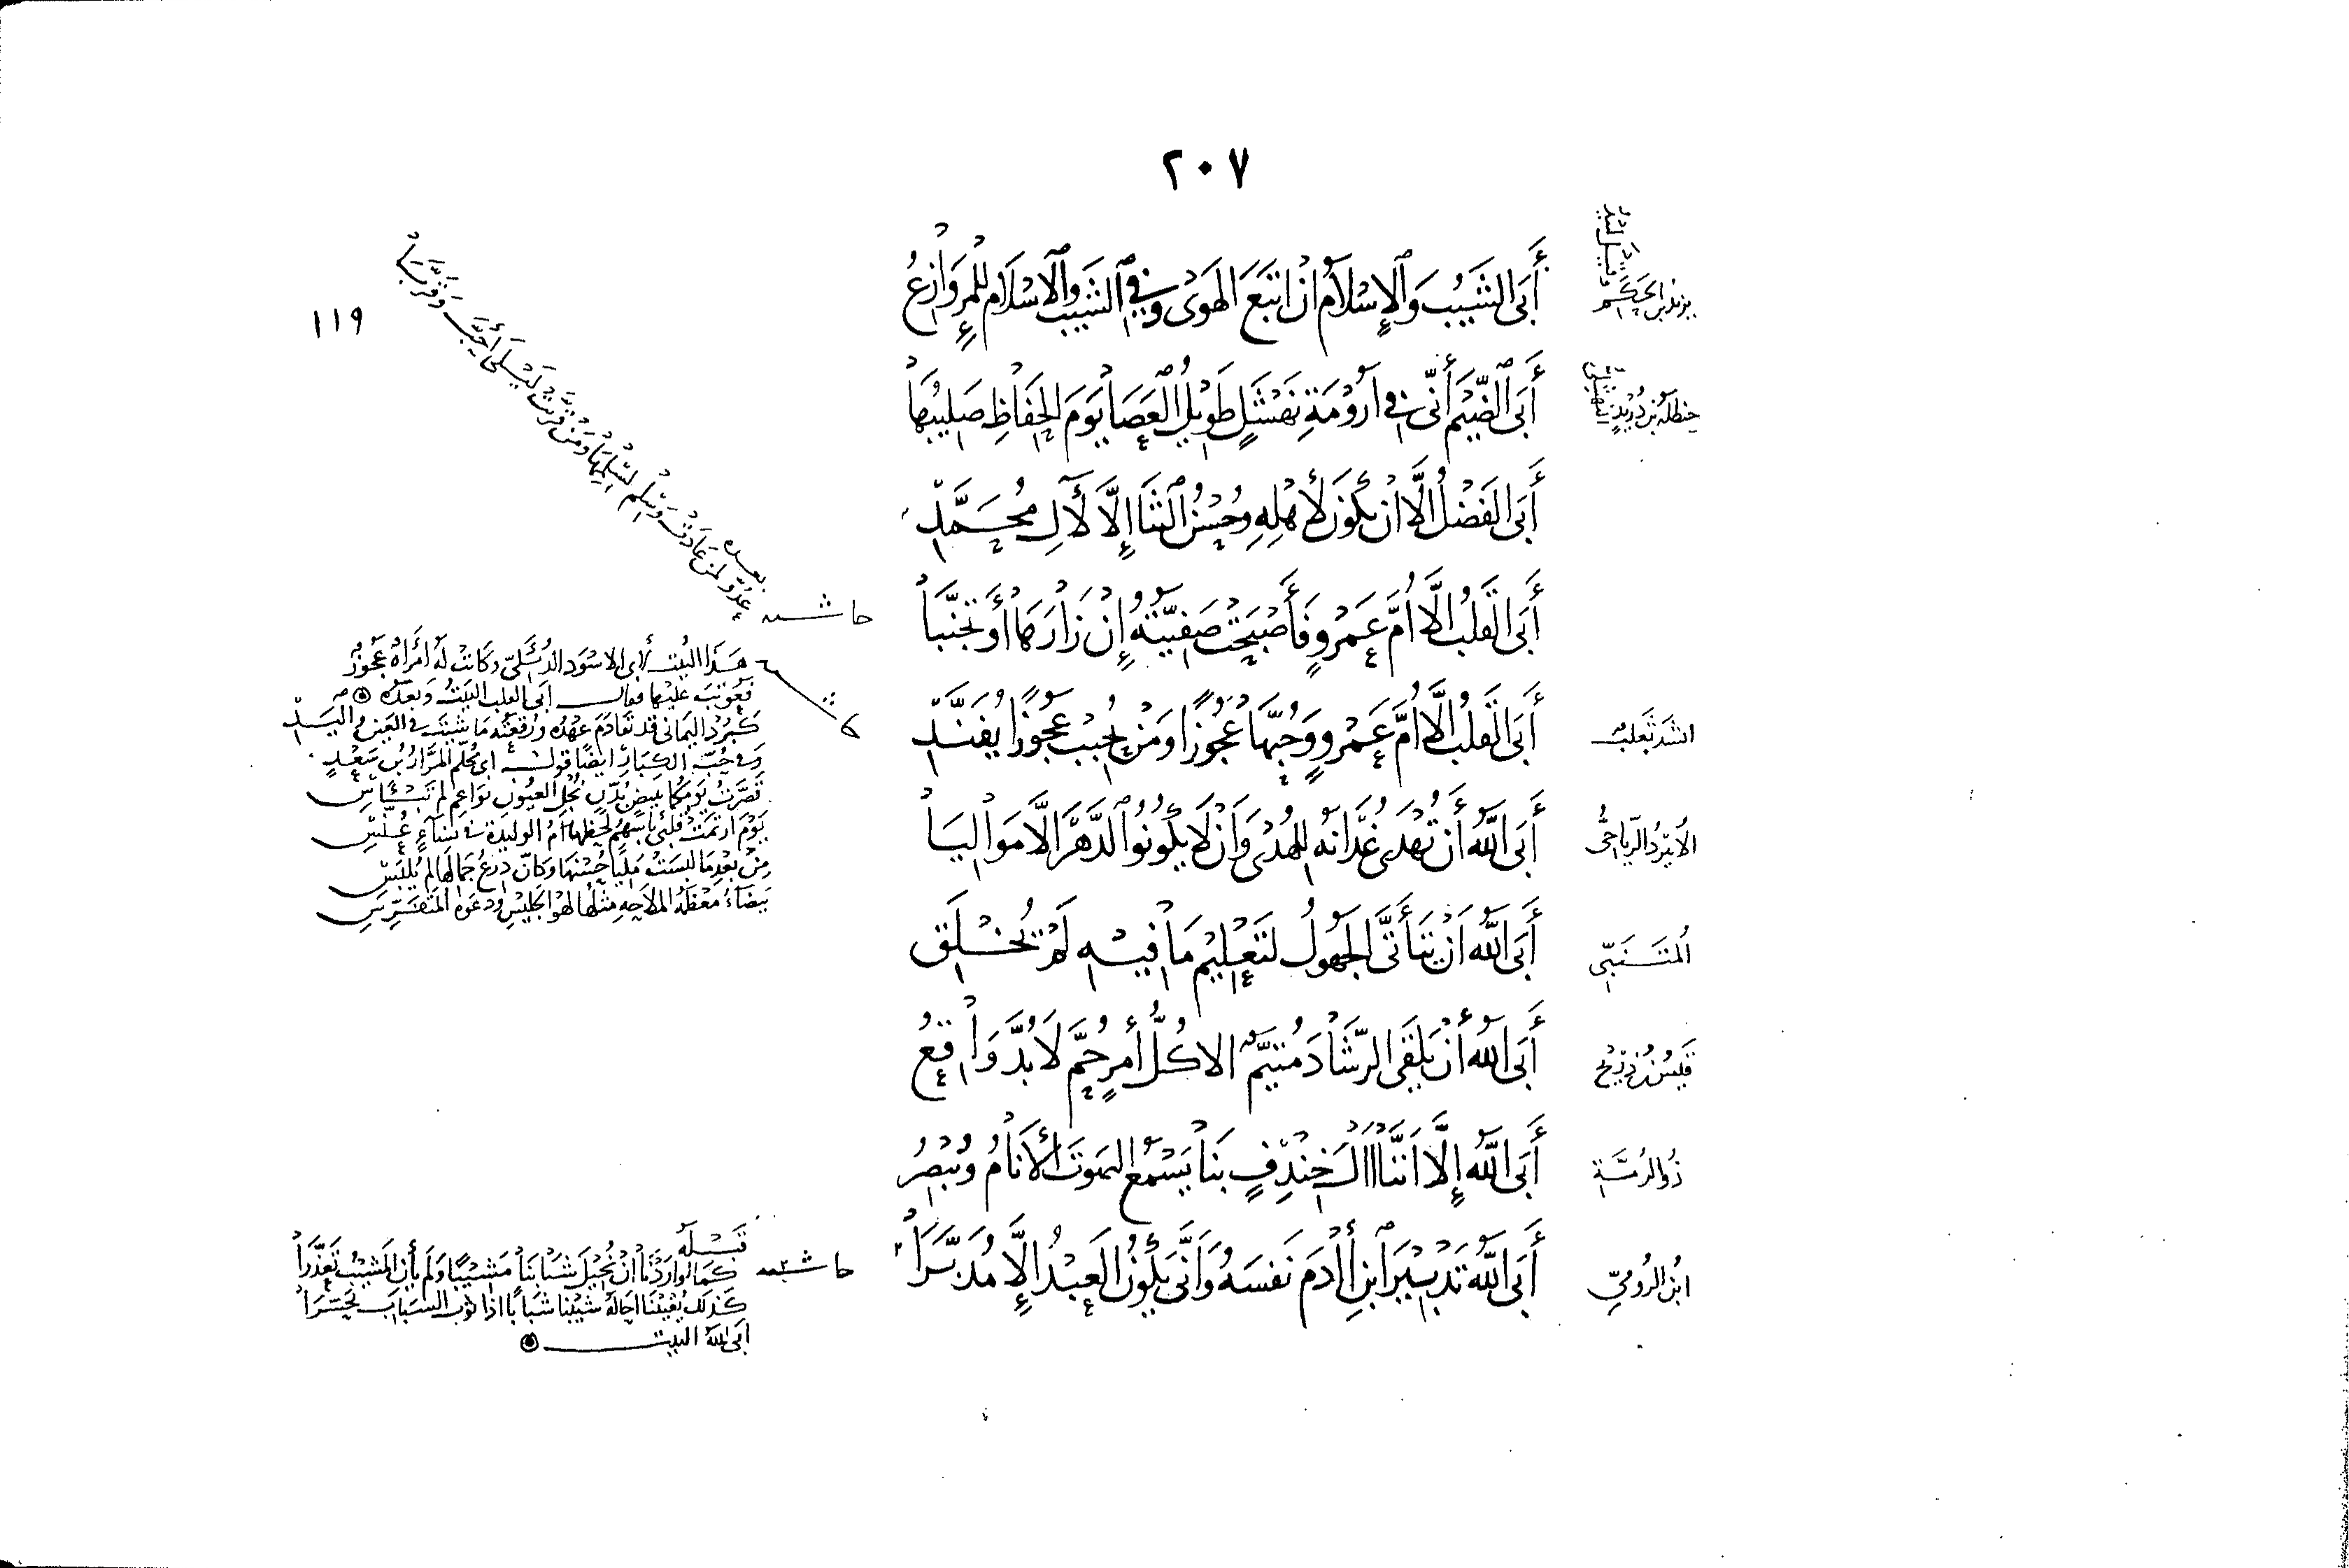 ٢٠٧
يزيد بن الحكم وقيل لبيد
أَبَى الشَّيْبُ وَالْإِسْلَامُ أَنْ أَتَّبِعَ الْهَوَى وَفِي الشَّيْبِ وَالْإِسْلَامِ لِلْمَرْءِ وَازِعُ
حنظلة بن دريد النهشلي
أَبَى الضَّيْمَ أَنِّي فِي أَرُومَةِ نَهْشَلٍ طَوِيلُ الْعَصَا يَوْمَ الْحِفَاظِ صَلِيبُهَا
أَبَى الْفَضْلُ إِلَّا أَنْ يَكُونَ لِأَهْلِهِ وَحُسْنُ الثَّنَا إِلَّا لِآلِ مُحَمَّدِ
أَبَى الْقَلْبُ إِلَّا أُمَّ عَمْرٍو فَأَصْبَحَتْ صَفِيَّتَهُ إِنْ زَارَهَا أَوْ تَجَنَّبَا
انشد ثعلب
أَبَى الْقَلْبُ إِلَّا أُمَّ عَمْرٍو وَحُبَّهَا عَجُوزًا وَمَنْ يُحْبِبْ عَجُوزًا يُفَنَّدِ
الأبيرد الرياحي
أَبَى اللهُ أَنْ تُهْدَى غُدَانَةُ لِلْهُدَى وَأَنْ لَا يَكُونُوا الدَّهْرَ إِلَّا مَوَالِيَا
المتنبي
أَبَى اللهُ أَنْ يَتَأَتَّى الْجَهُولُ لِتَعْلِيمِ مَا فِيهِ لَمْ تُخْلَقِ
قيس بن ذريح
أَبَى اللهُ أَنْ يَلْقَى الرَّشَادَ مُتَيَّمٌ ألا كُلُّ أَمْرٍ حُمَّ لَا بُدَّ وَاقِعُ
ذو الرمة
أَبَى اللهُ إِلَّا أَنَّنَا آلُ خِنْدِفٍ بِنَا يَسْمَعُ الصَوْتَ الْأَنَامُ وَيُبْصِرُ
ابن الرومي
أَبَى اللهُ تَدْبِيرَ ابْنِ آدَمَ نَفْسَهُ وَأَنَّى يَكُونُ الْعَبْدُ إِلَّا مُدَبَّرَا
١١٩
حاشية
بعده
عدو لمن عادت وسلم لسلمها ومن قربت ليلى أحب وقربا
حاشية
هذا البيت لأبي الاسود الدئلي وكانت له امرأة عجوز
فعوتب عليها فقال أبى القلب البيت وبعده
كبرد اليماني قد تقادم عهده ورقعته ما شئت في العين واليد
وفي حب الكبار أيضا قول ابي محلم المرار بن سعيد
بيض بدن نجل العيون نواعم لم
يوم ارتمت قلبي بأسهم لحظها أم الوليدة في نساء
من بعد ما لبست مليا حسنها وكأن درع جمالها لم يلبس
بيضاء الملاحة مثلها لهو الجليس المتفرس
حاشية
قبله
كما لو أردنا أن نحيل شبابنا مشيبا ولم يأن المشيب تعذرا
كذلك يعيينا احالة شيبنا شبابا إذا ثوب الشباب تحسرا
أبى الله البيت